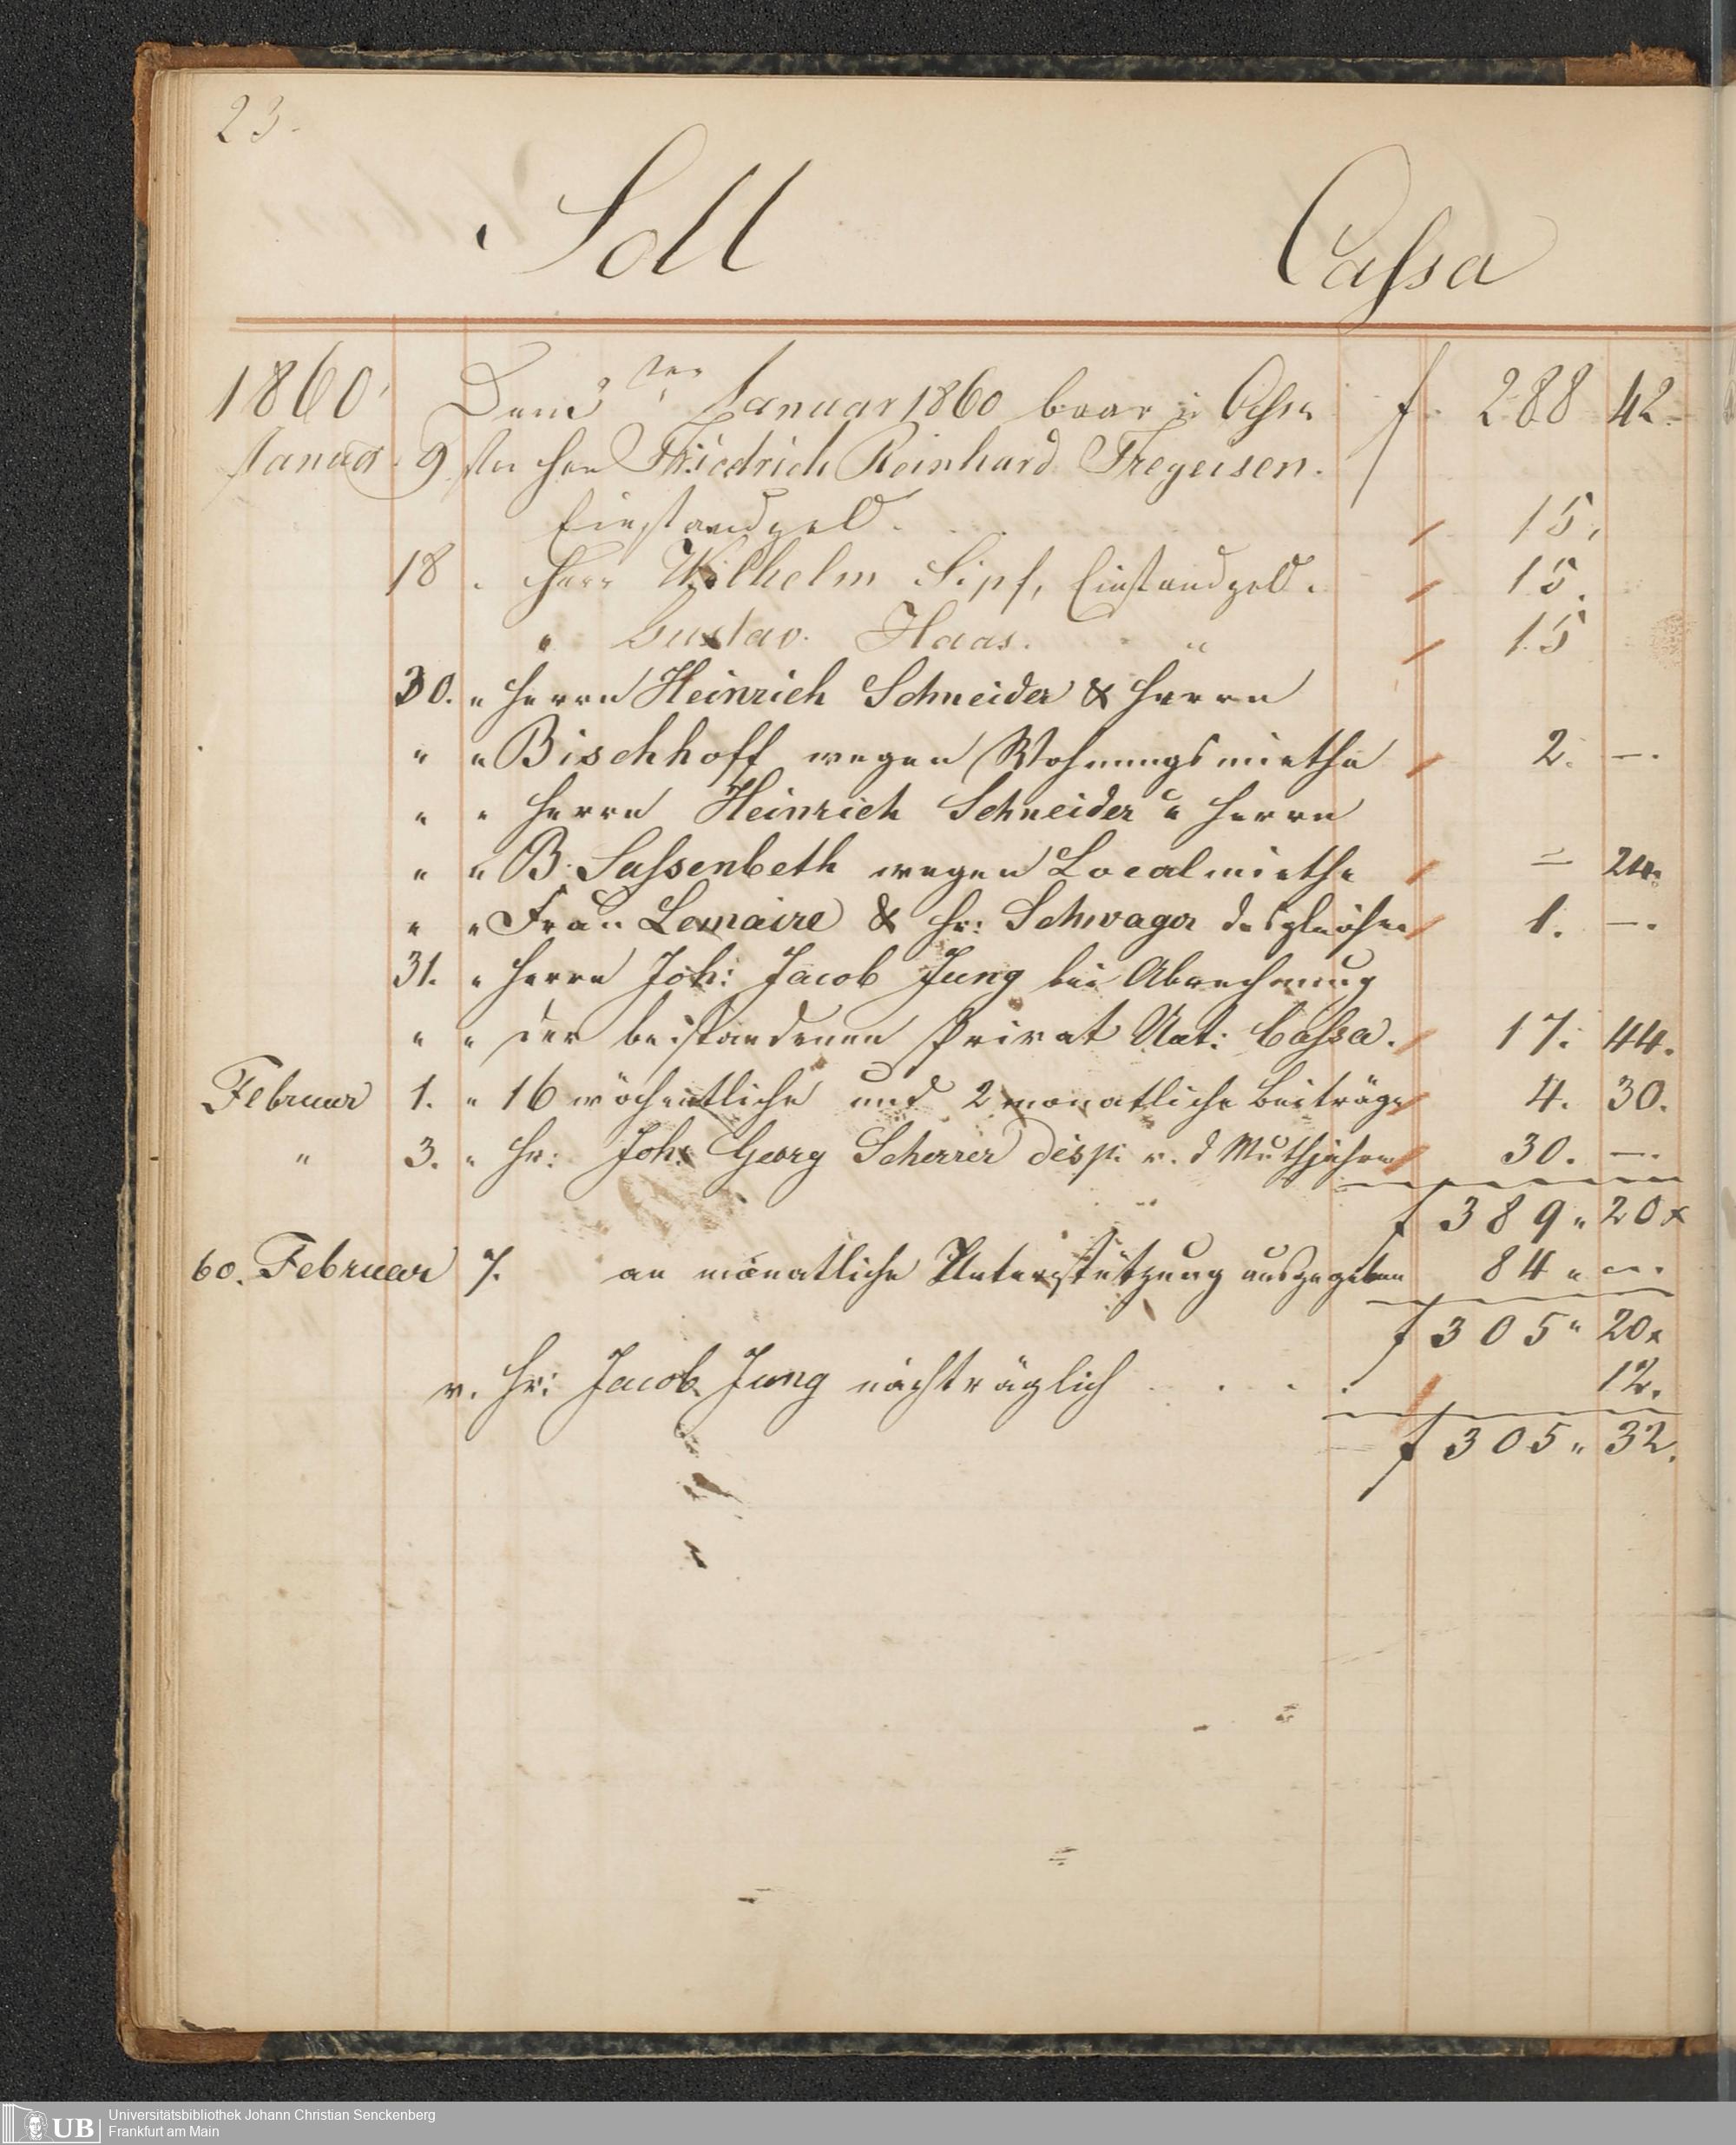 23.
Soll Cassa
1860 Dem 3ten Januar 1860 baar in Cassa f. 288 42.
Januar 9. der Herr Friedrich Reinhard Fregeisen.
Einstandgeld. 15.
18 " Herr Wilhelm Sipf, Einstandgeld. 15.
" Gustav Haas. " 15
30. " Herrn Heinrich Schneider & Herrn
" " Bischhoff wegen Wohnungsmiethe 2. —.
" " Herrn Heinrich Schneider u Herrn
" " B. Sassenbeth wegen Localmiethe = 24.
" " Frau Lemaire & Hr: Schwager desgleichen 1. —.
31. " Herrn Joh: Jacob Jung bei Abrechnung
" " der bestandenen Privat Unt: Cassa. 17. 44.
Februar 1. " 16 wöchentliche und 2 monatliche Beiträge 4. 30.
" 3. " Hr: Joh: Georg Scherrer disp. v. d Muthjahren 30. —.
f 389 " 20 x
60. Februar 7. an monatliche Unterstützung ausgegeben 84 " —.
f 305 " 20 x
v. Hr: Jacob Jung nachträglich . . . . 12.
f 305 " 32.
UB Universitätsbibliothek Johann Christian Senckenberg
Frankfurt am Main